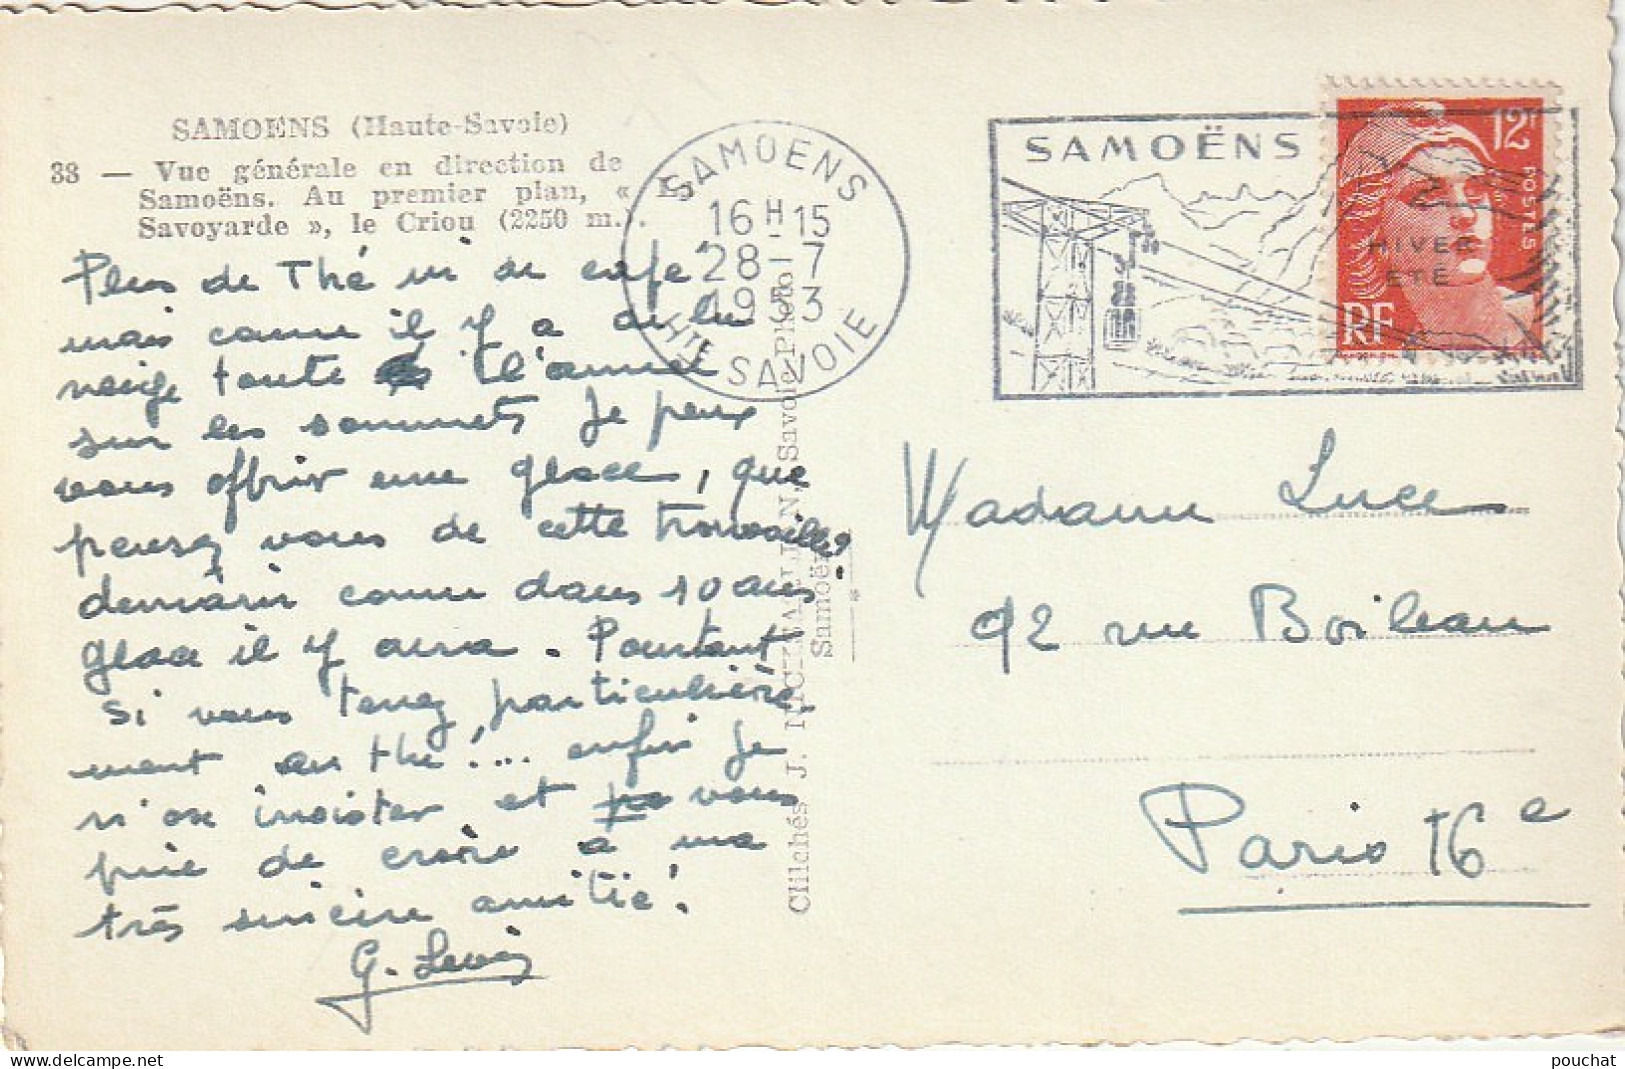 SAMOENS (Haute-Savoie)
38 — Vue générale en direction de
Samoëns. Au premier plan, « La
Savoyarde », le Criou (2250 m.).
Plus de Thé ni de café
mais comme il y a de la
neige toute l'année
sur les sommets je peux
vous offrir une glace, que
pensez vous de cette trouvaille?
demain comme dans 10 ans
glace il y aura. Pourtant
si vous tenez particulière
ment au thé!... enfin je
n'ose insister et vous
prie de croire à ma
très sincère amitié!
G.
SAMOENS
16H-15
28-7
19 3
HTE SAVOIE
Clichés J. Savoie-Photo
Samoëns
SAMOËNS
HIVER
ÉTÉ
12F
POSTES
RF
Madame Luce
92 rue Boileau
Paris 16e
pouchat